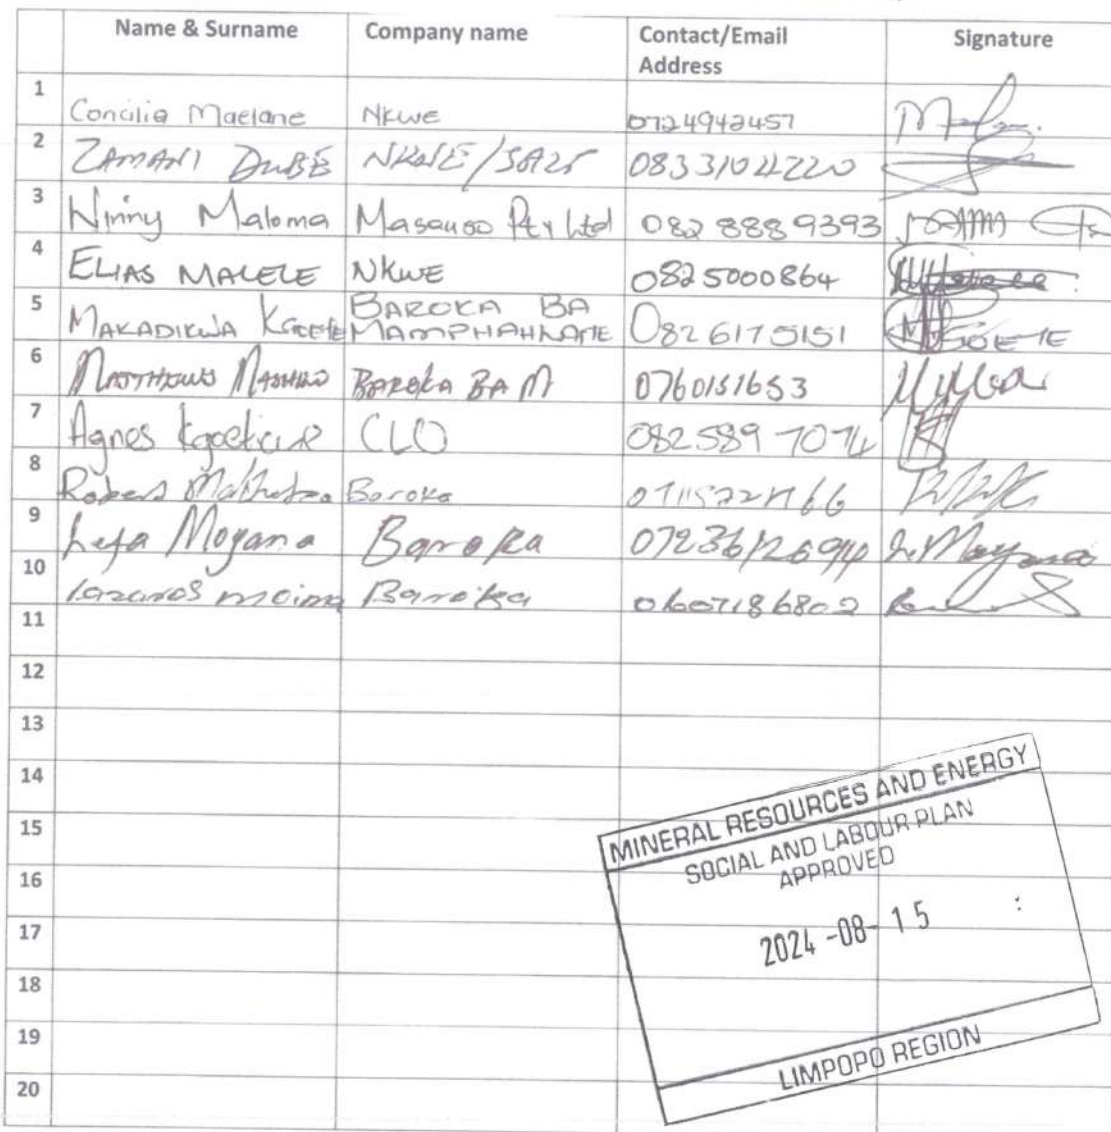 Name & Surname Company name Contact/Email Address Signature
1 Concilia Maelane Nkwe 0724942457
2 ZAMANI DUBE NKWE/ 0833104220
3 Ninny Maloma Pty Ltd 082 888 9393
4 ELIAS MALELE NKWE 0825000864
5 MAKADIKWA BAROKA BA MAMPHAHLANE 082 617 5151
6 MATTHEWS BAROKA BA M 0760151653
7 Agnes CLO 082 589 7074
8 Robert Baroka
9 Lefa Moyana Baroka L. Moyana
10 Lazarus moima Baroka 0607186802
11
12
13
14
15
16
17
18
19
20
MINERAL RESOURCES AND ENERGY
SOCIAL AND LABOUR PLAN
APPROVED
2024 -08- 15
LIMPOPO REGION